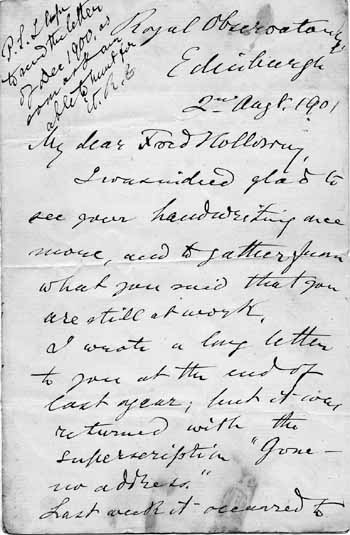 P.S. I hope
to send the letter
of Dec 1900, as
soon as I am
able to hunt for
it. R.C.
Royal Observatory
Edinburgh
2nd Augt. 1901
My dear Fred Holloway,
I was indeed glad to
see your handwriting once
more, and to gather from
what you said that you
are still at work.
I wrote a long letter
to you at the end of
last year; but it was
returned with the
superscription "Gone –
no address."
Last week it occurred to